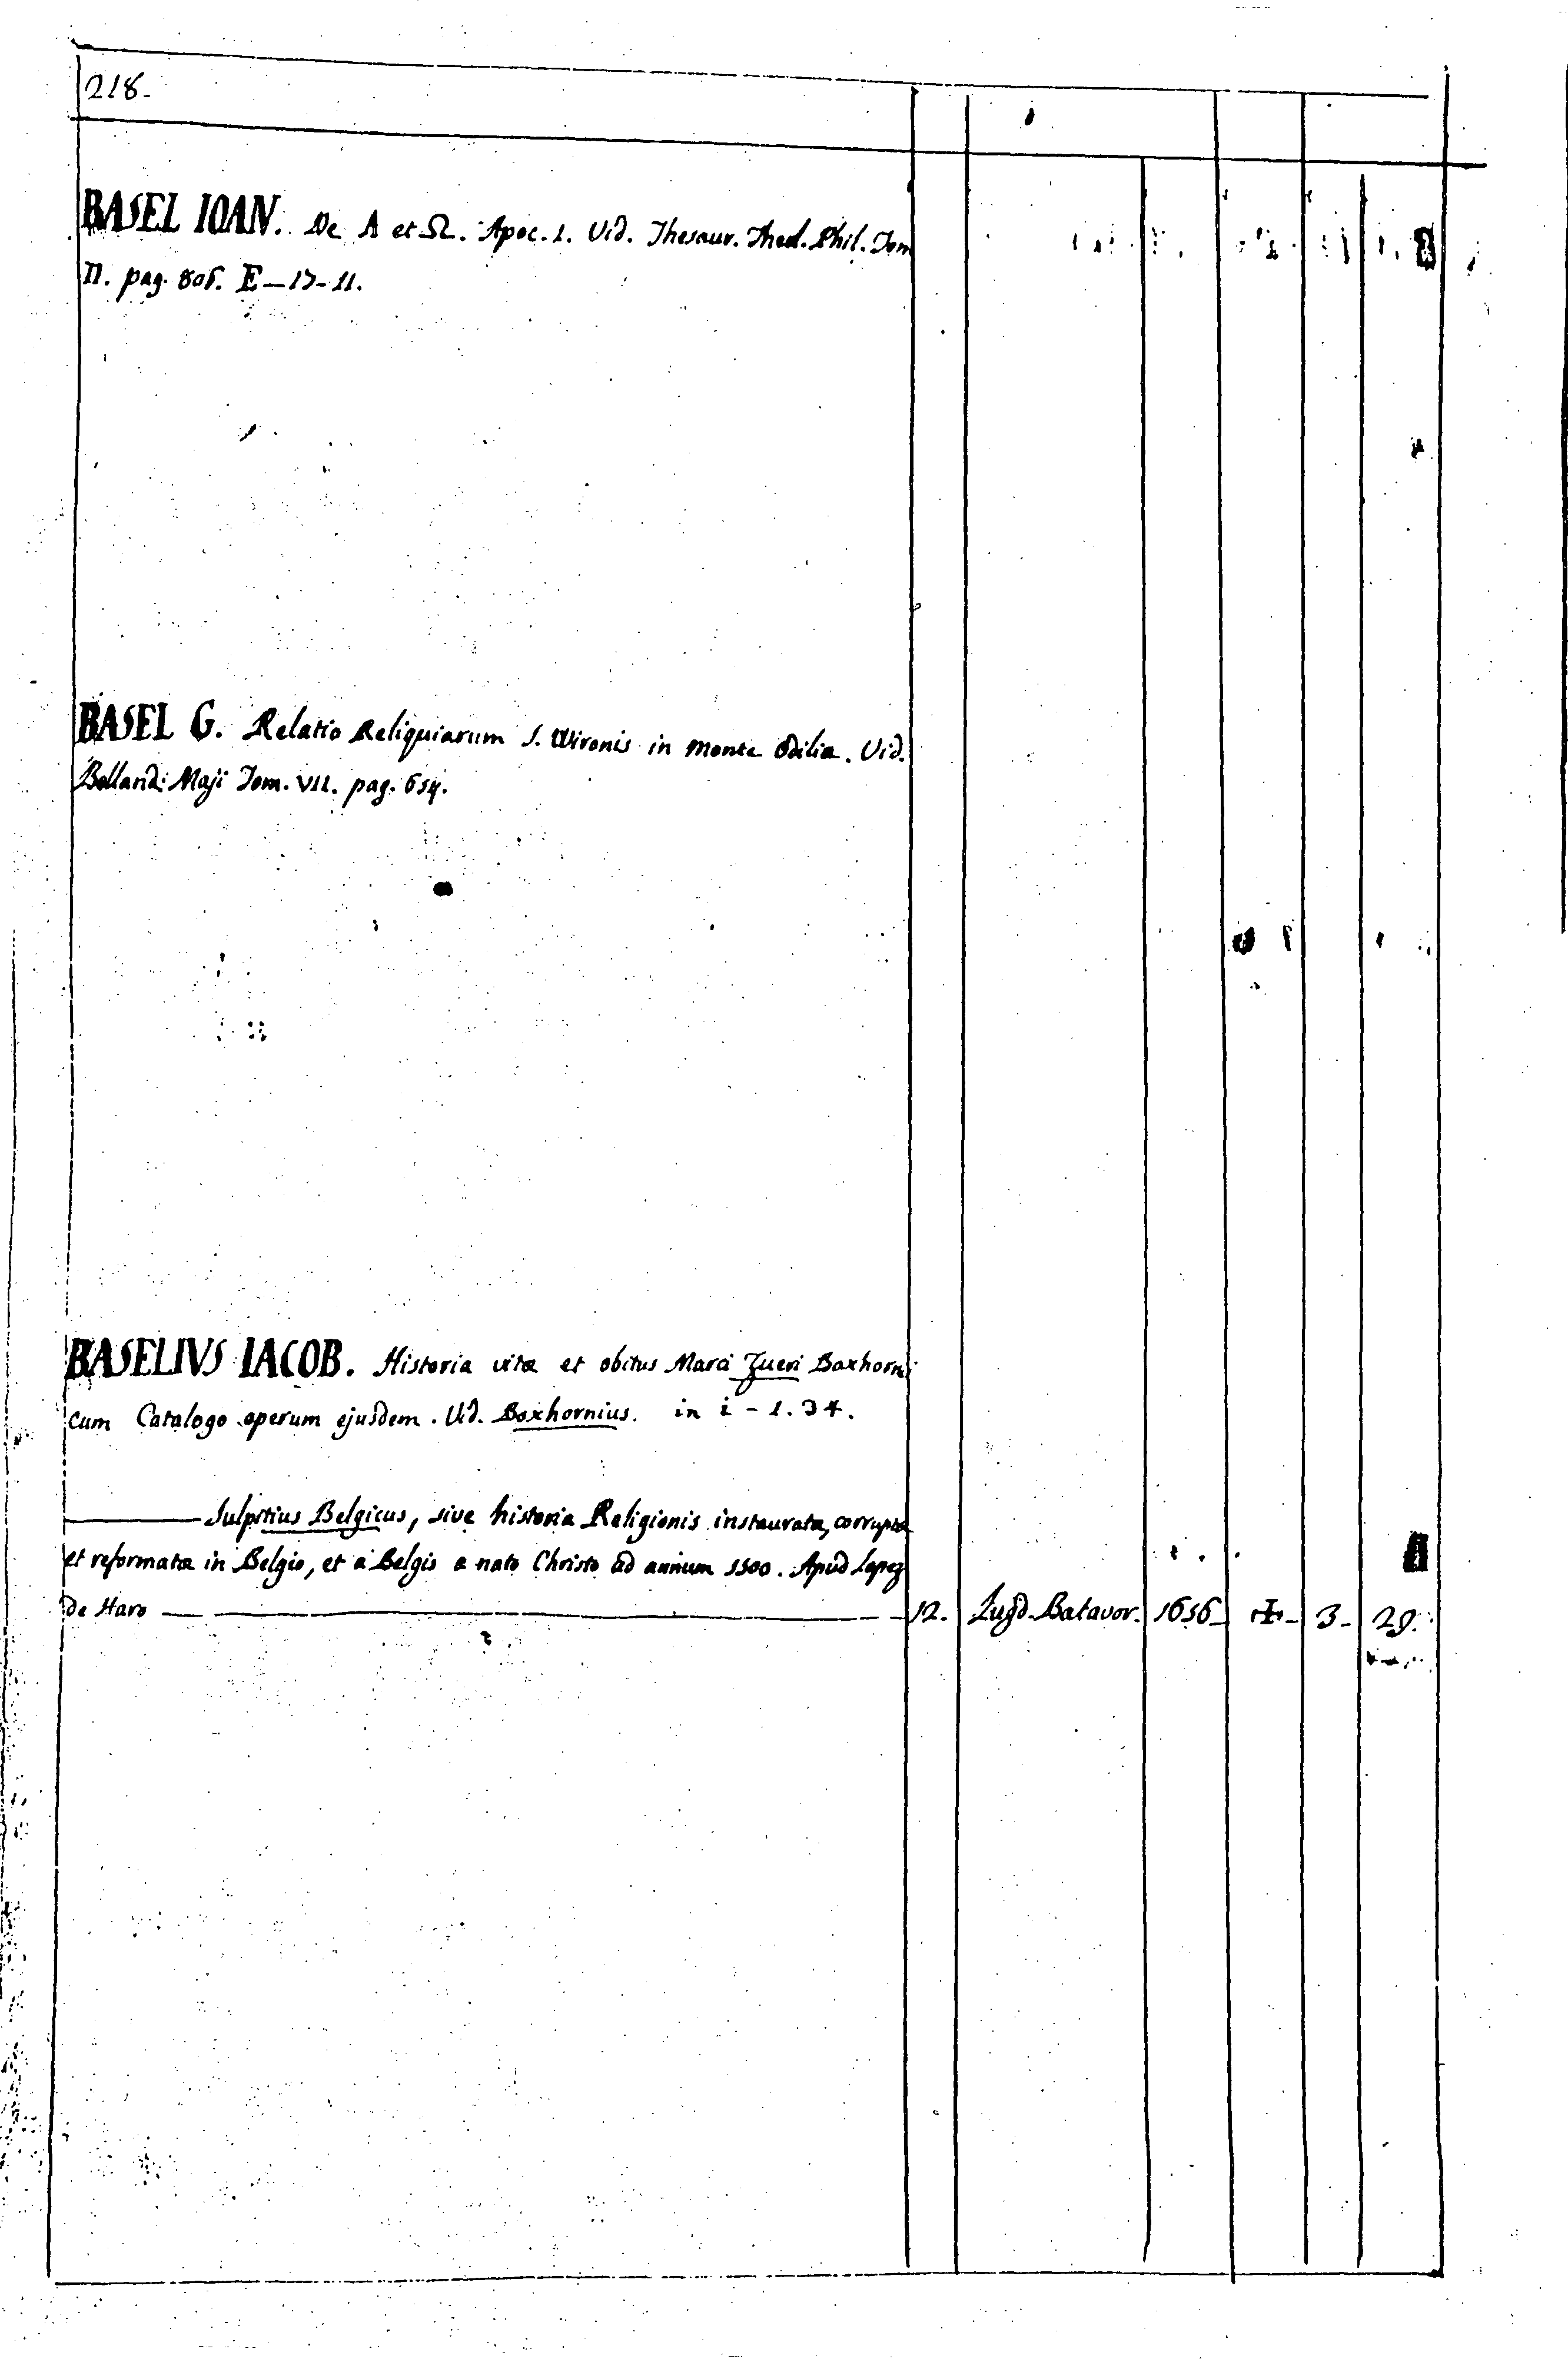 218.
BASEL IOAN. De A et Ω. Apoc. 1. Vid. Thesaur. Theol. Phil. Tom
II. pag. 805. E — 17 - 11.
BASEL G. Relatio Reliquiarum S. Wironis in monte Odiliæ. Vid.
Bolland: Maji Tom. VII. pag. 654.
BASELIVS IACOB. Historia vitæ et obitus Marci Zueri Boxhorni
cum Catalogo operum ejusdem. Vid. Boxhornius. in i - 1. 34.
——— Sulpitius Belgicus, sive historia Religionis instauratæ, corruptæ
et reformatæ in Belgio, et à Belgis a nato Christo ad annum 1500. Apud Lopez
de Haro — ——— 12. Lugd. Batavor. 1656 - 3 - 29.